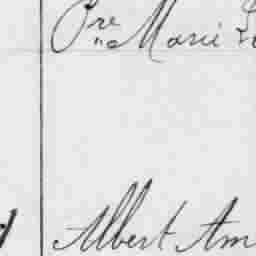 Pre Marie
Albert Am